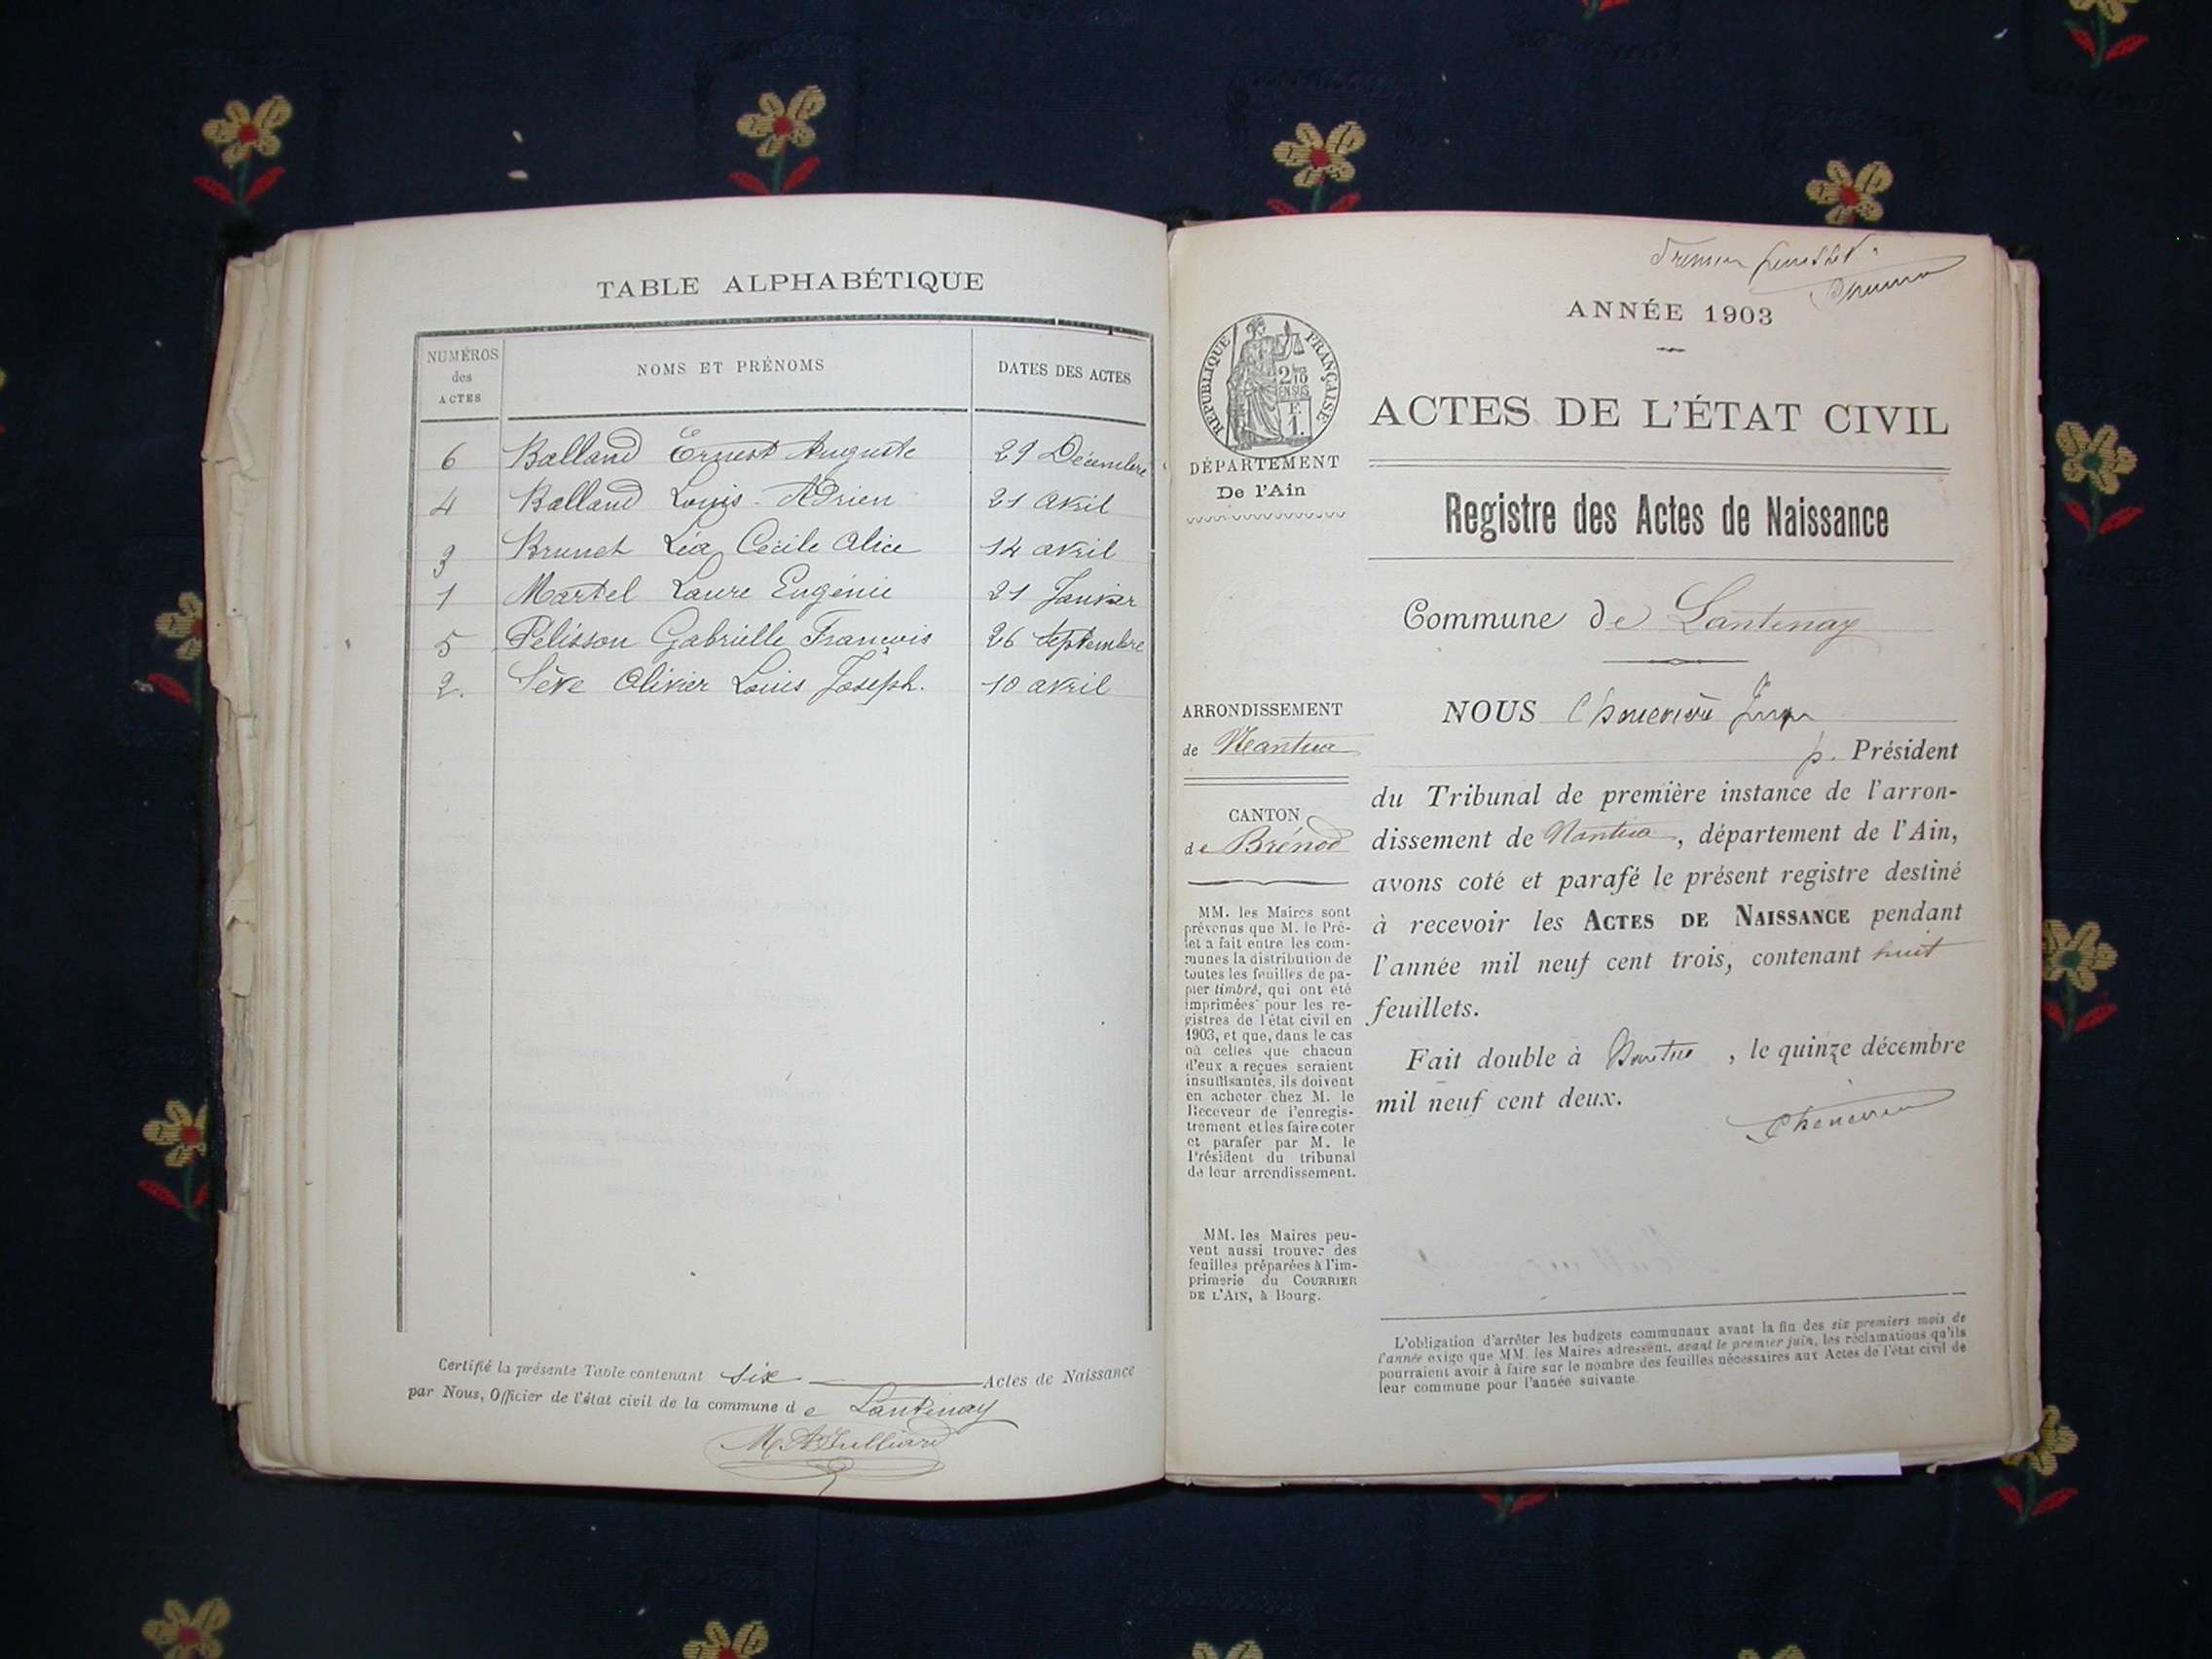 TABLE ALPHABÉTIQUE
NUMÉROS
des
ACTES
NOMS ET PRÉNOMS
DATES DES ACTES
6 Balland Ernest Auguste 29 Décembre
4 Balland Louis-Adrien 21 avril
3 Brunet Léa Cécile Alice 14 avril
1 Martel Laure Eugénie 21 Janvier
5 Pélisson Gabrielle François 26 Septembre
2. Sève Olivier Louis Joseph. 10 avril
Certifié la présente Table contenant six Actes de Naissance
par Nous, Officier de l'état civil de la commune de Lantenay
ANNÉE 1903
RÉPUBLIQUE FRANÇAISE
ACTES DE L'ÉTAT CIVIL
DÉPARTEMENT
De l'Ain
Registre des Actes de Naissance
Commune de Lantenay
ARRONDISSEMENT
de Nantua
CANTON
de Brénod
MM. les Maires sont
prévenus que M. le Pré-
fet a fait entre les com-
munes la distribution de
toutes les feuilles de pa-
pier timbré, qui ont été
imprimées pour les re-
gistres de l'état civil en
1903, et que, dans le cas
où celles que chacun
d'eux a reçues seraient
insuffisantes, ils doivent
en acheter chez M. le
Receveur de l'enregis-
trement et les faire coter
et parafer par M. le
Président du tribunal
de leur arrondissement.
MM. les Maires peu-
vent aussi trouver des
feuilles préparées à l'im-
primerie du COURRIER
DE L'AIN, à Bourg.
NOUS
p. Président
du Tribunal de première instance de l'arron-
dissement de Nantua, département de l'Ain,
avons coté et parafé le présent registre destiné
à recevoir les ACTES DE NAISSANCE pendant
l'année mil neuf cent trois, contenant huit
feuillets.
Fait double à Nantua, le quinze décembre
mil neuf cent deux.
L'obligation d'arrêter les budgets communaux avant la fin des six premiers mois de
l'année exige que MM. les Maires adressent, avant le premier juin, les réclamations qu'ils
pourraient avoir à faire sur le nombre des feuilles nécessaires aux Actes de l'état civil de
leur commune pour l'année suivante.